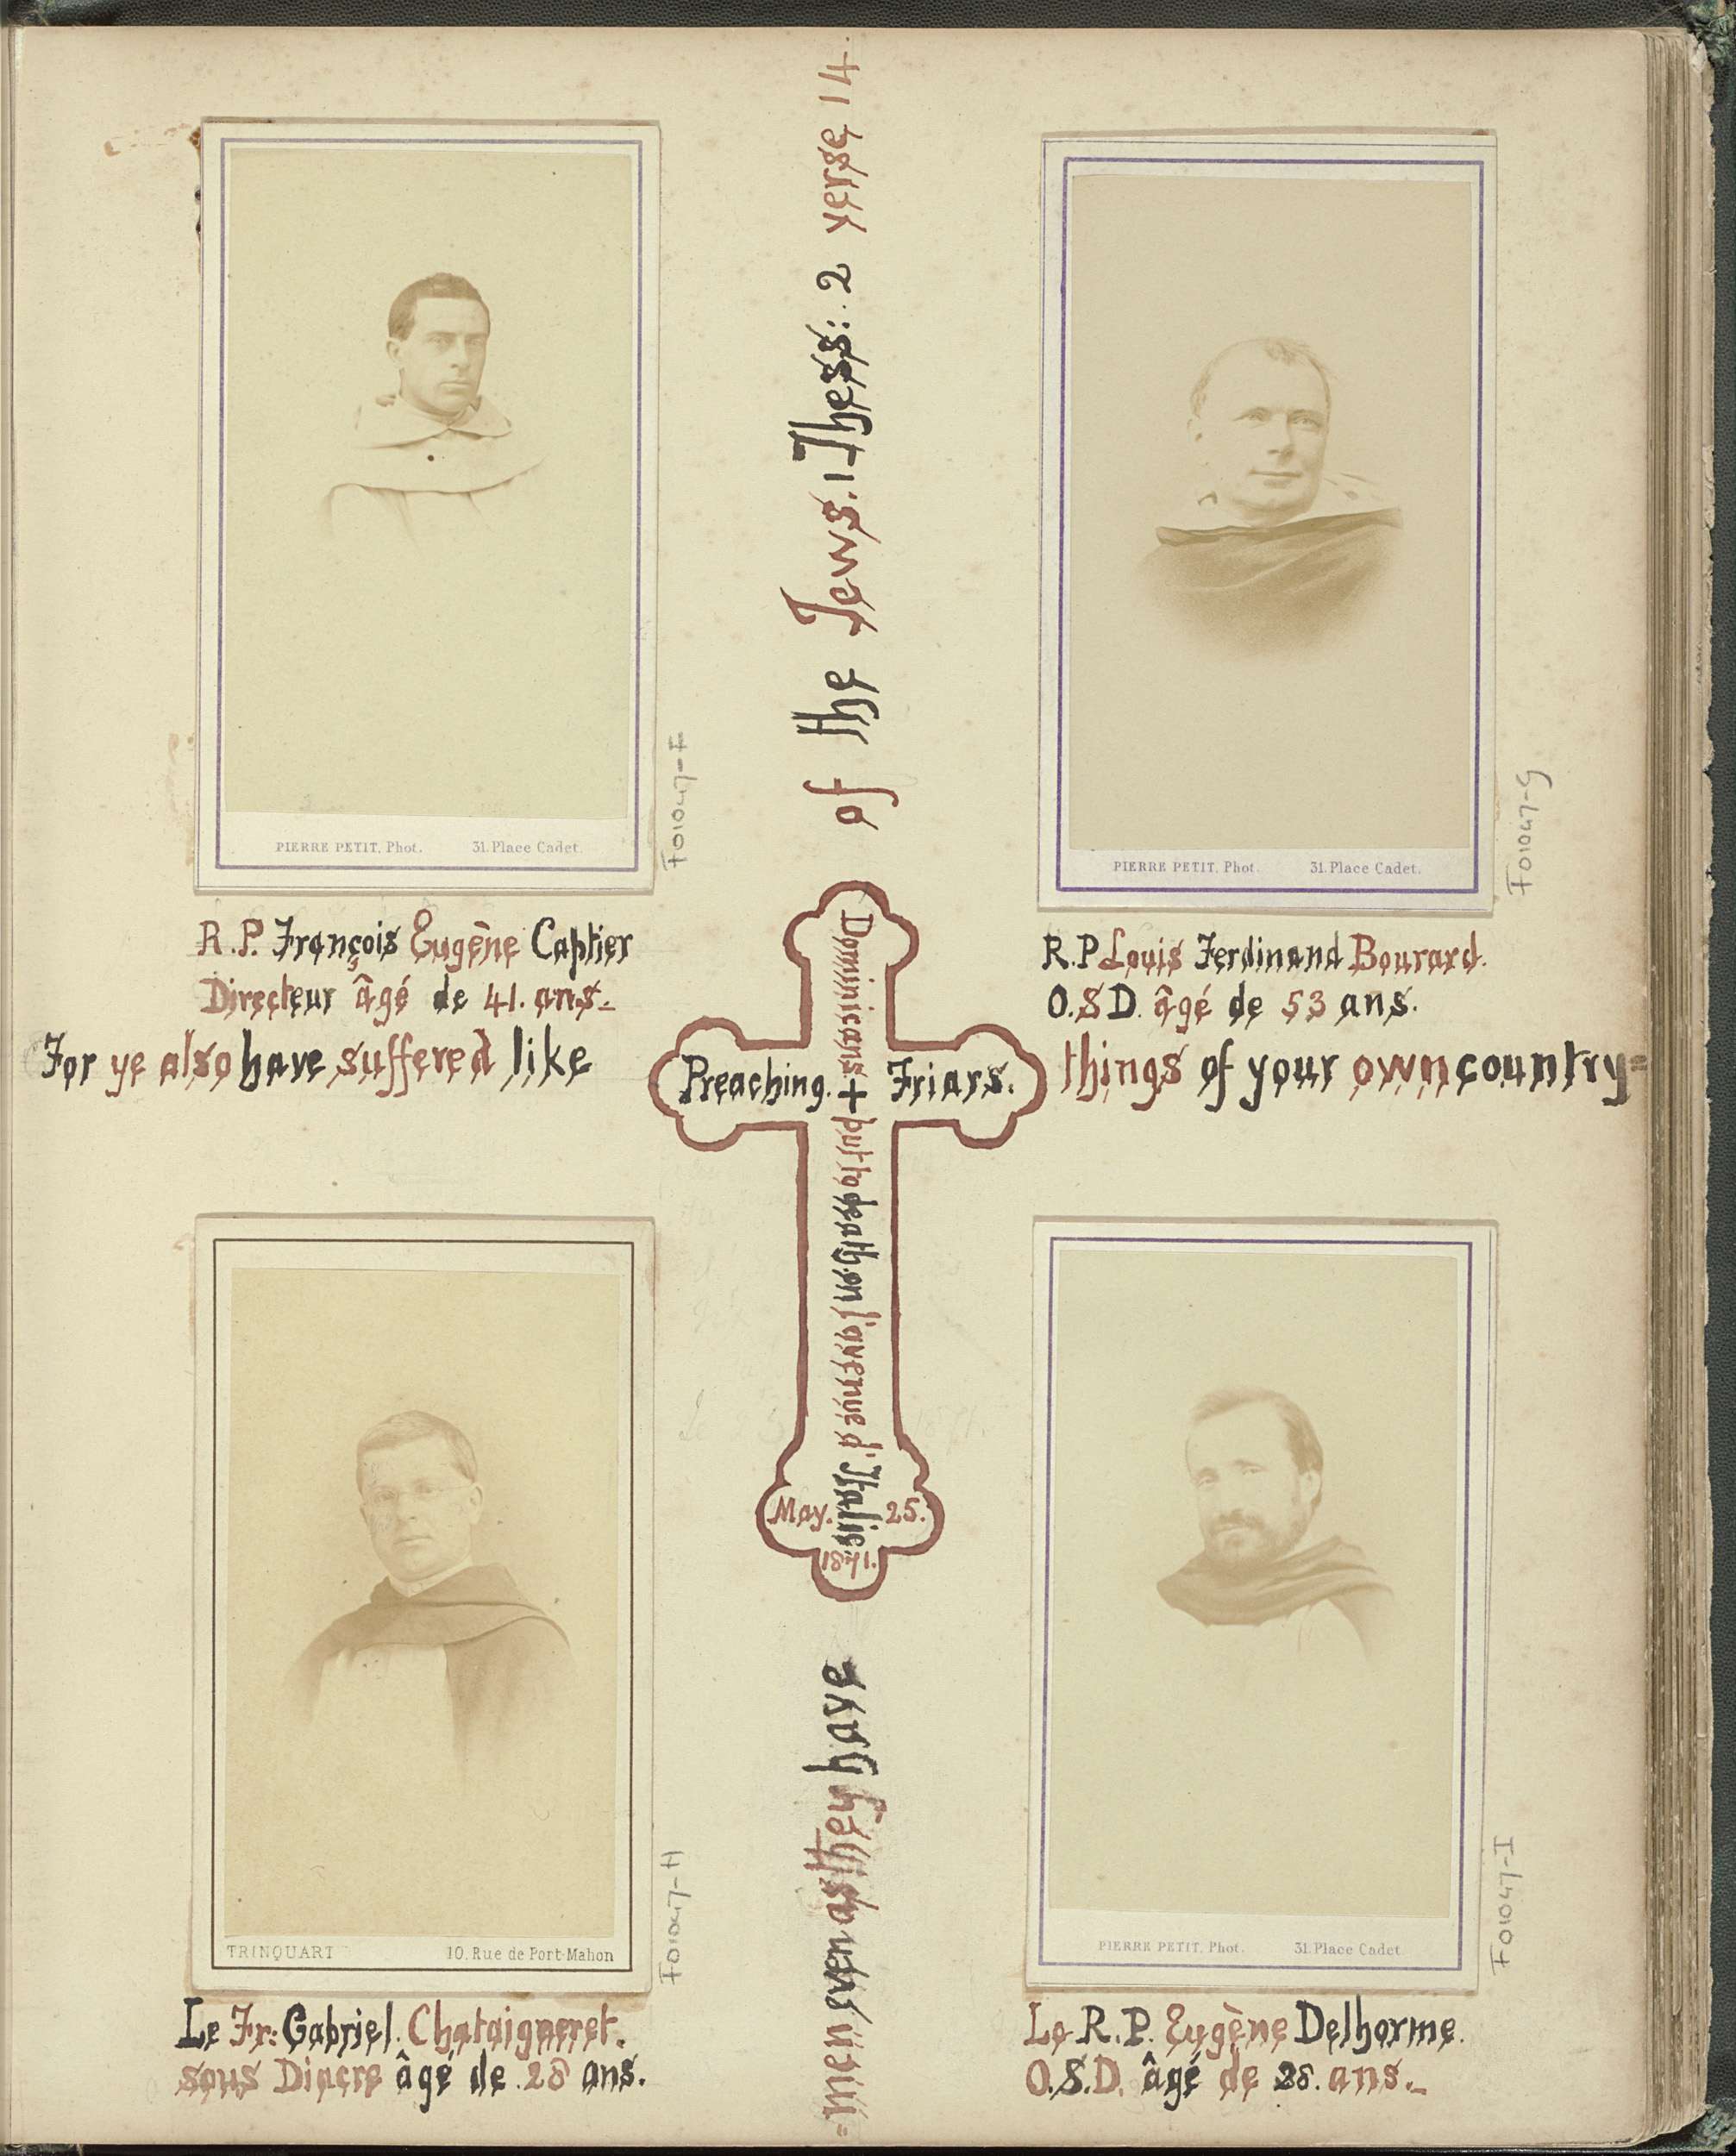 PIERRE PETIT, Phot. 31. Place Cadet.
F01047-F
R.P. François Eugène Captier
Directeur âgé de 41. ans.
PIERRE PETIT, Phot. 31. Place Cadet.
F01047-G
R.P Louis Ferdinand Bourard.
O.S D. âgé de 53 ans.
For ye also have suffered like things of your own country=
=men even as they have
of the Jews. 1 Thess: 2 verse 14.
Preaching. + Friars.
Dominicans + put to death en l'avenue d'Italie.
May. 25.
1871.
TRINQUART 10, Rue de Port-Mahon
F01047-H
Le Fr: Gabriel. Chataigneret.
sous Diacre âgé de 28 ans.
PIERRE PETIT, Phot. 31. Place Cadet.
F01047-I
Le R.P. Eugène Delhorme.
O.S.D. âgé de 28. ans.